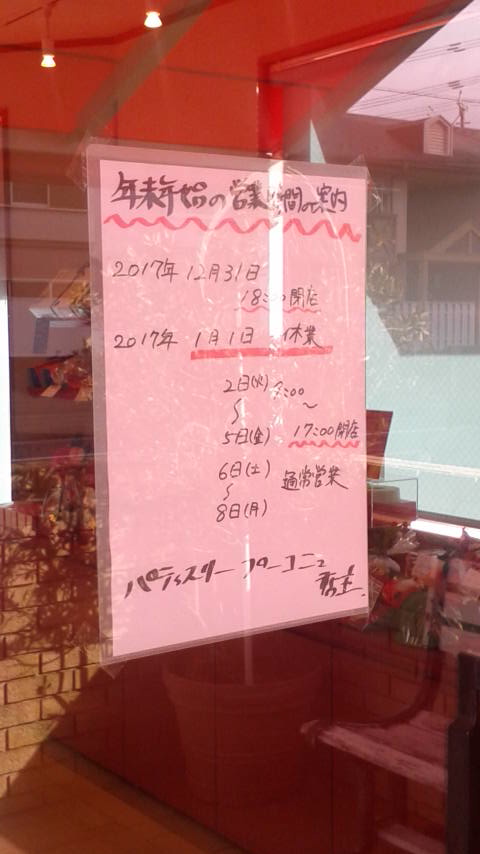 年末年始の営業時間のご案内
2017年 12月31日
18:00閉店
2017年 1月1日 休業
2日(火) 9:00
〜 〜
5日(金) 17:00閉店
6日(土)
〜 通常営業
8日(月)
パティスリー フローコニュ
店主